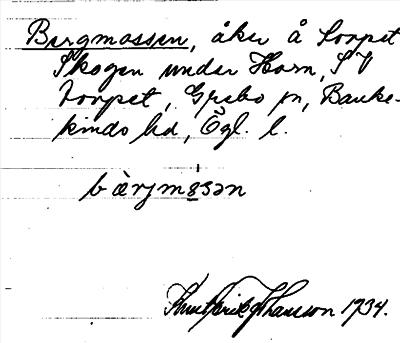 Bergmossen, åker å torpet
Skogen under Horn, S V
torpet, Grebo sn, Banke-
kinds hd, Ögl. l.
bærjmåsən
Knut Erik Johansson 1934.